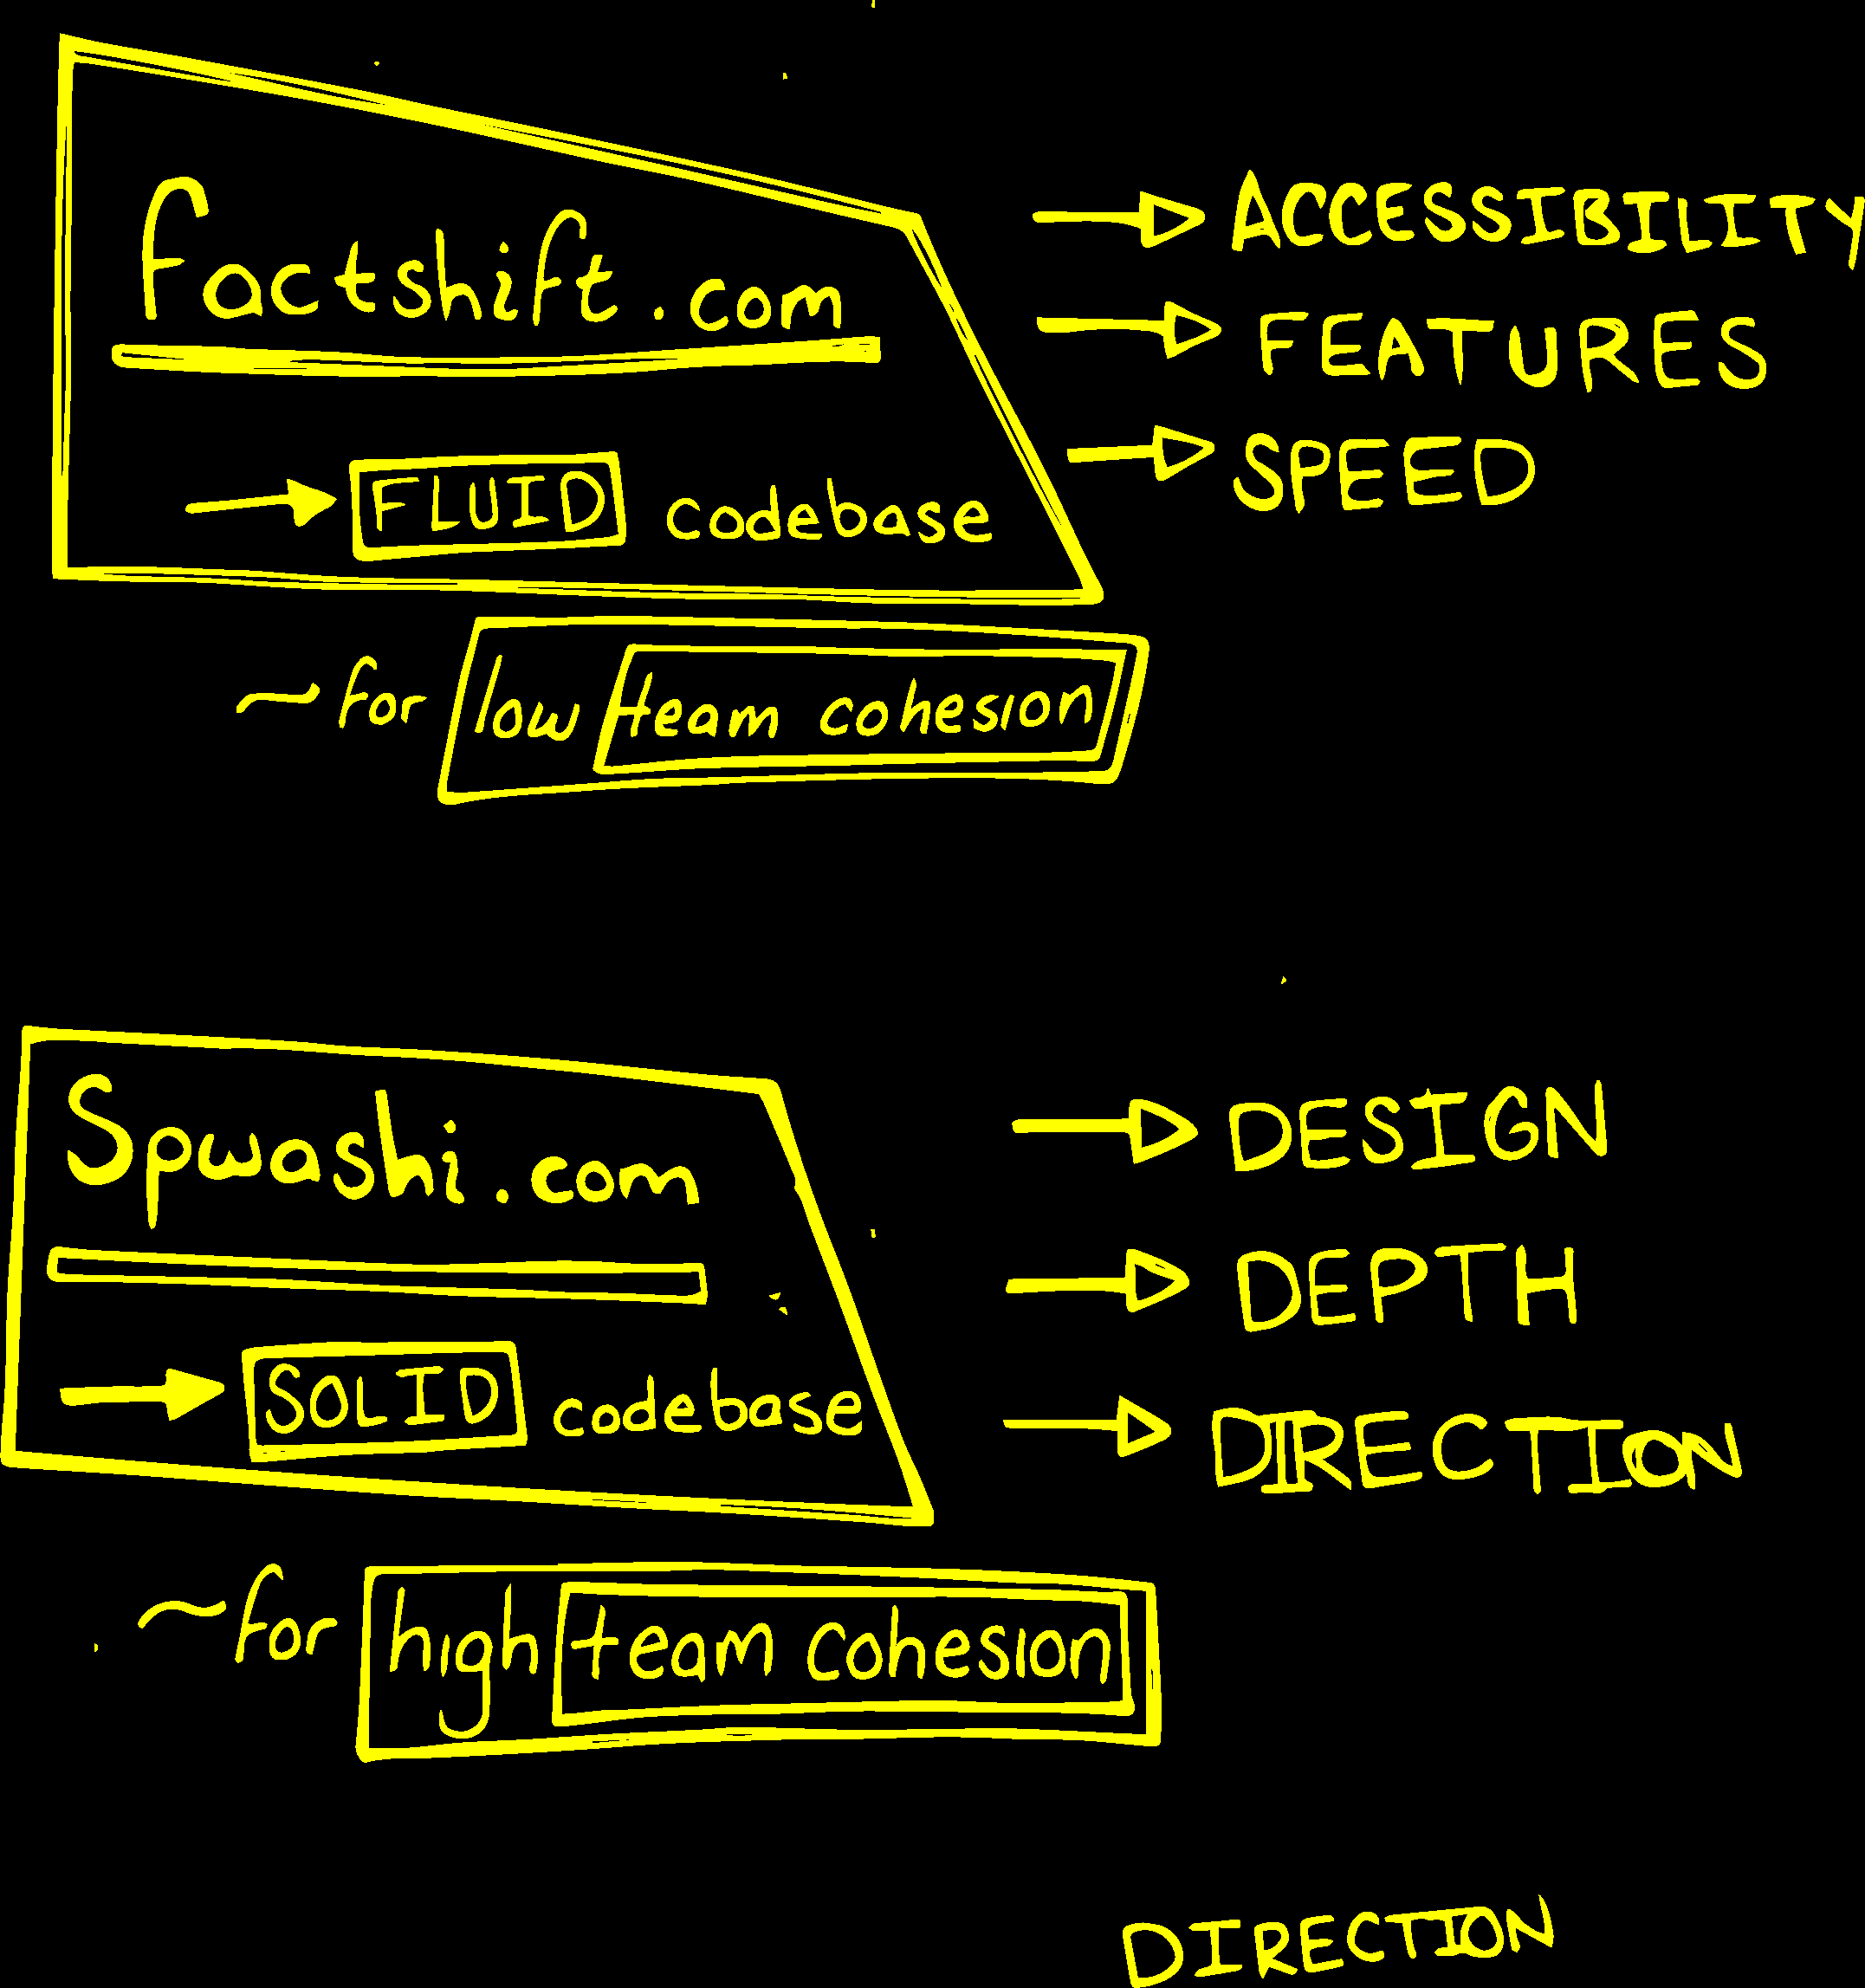 factshift.com
→ FLUID codebase
~for low team cohesion
→ ACCESSIBILITY
→ FEATURES
→ SPEED
Spwashi.com
→ SOLID codebase
~for high team cohesion
→ DESIGN
→ DEPTH
→ DIRECTION
DIRECTION